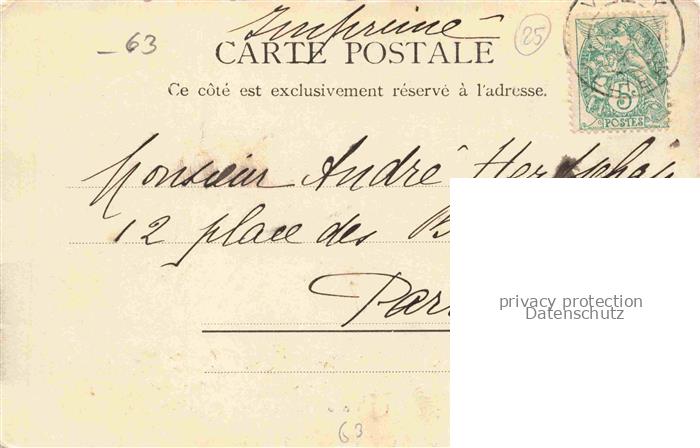 Imprimé
63
25
CARTE POSTALE
Ce côté est exclusivement réservé à l'adresse.
5c
POSTES
Monsieur André
12 place des
privacy protection
Datenschutz
63